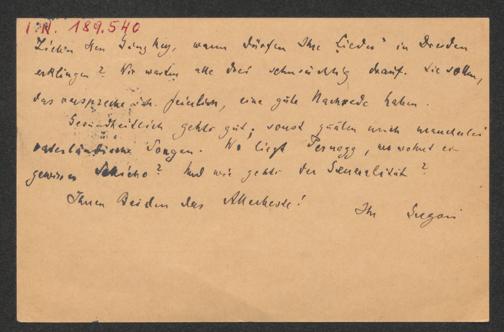 I.N. 189.540
Lieber Herr Dinghey, wann dürfen Ihre "Lieder" in Dresden
erklingen? Wir warten alle drei sehnsüchtig drauf. Sie sollen,
das verspreche ich feierlich, eine gute Nachrede haben.
Gesundheitlich gehts gut; sonst quälen mich mancherlei
vaterländische Sorgen. Wo liegt Pernegg, wo wohnt ein
gewisser Schicho? Und wie gehts der Generalität?
Ihnen Beiden das Allerbeste!
Ihr Gregori